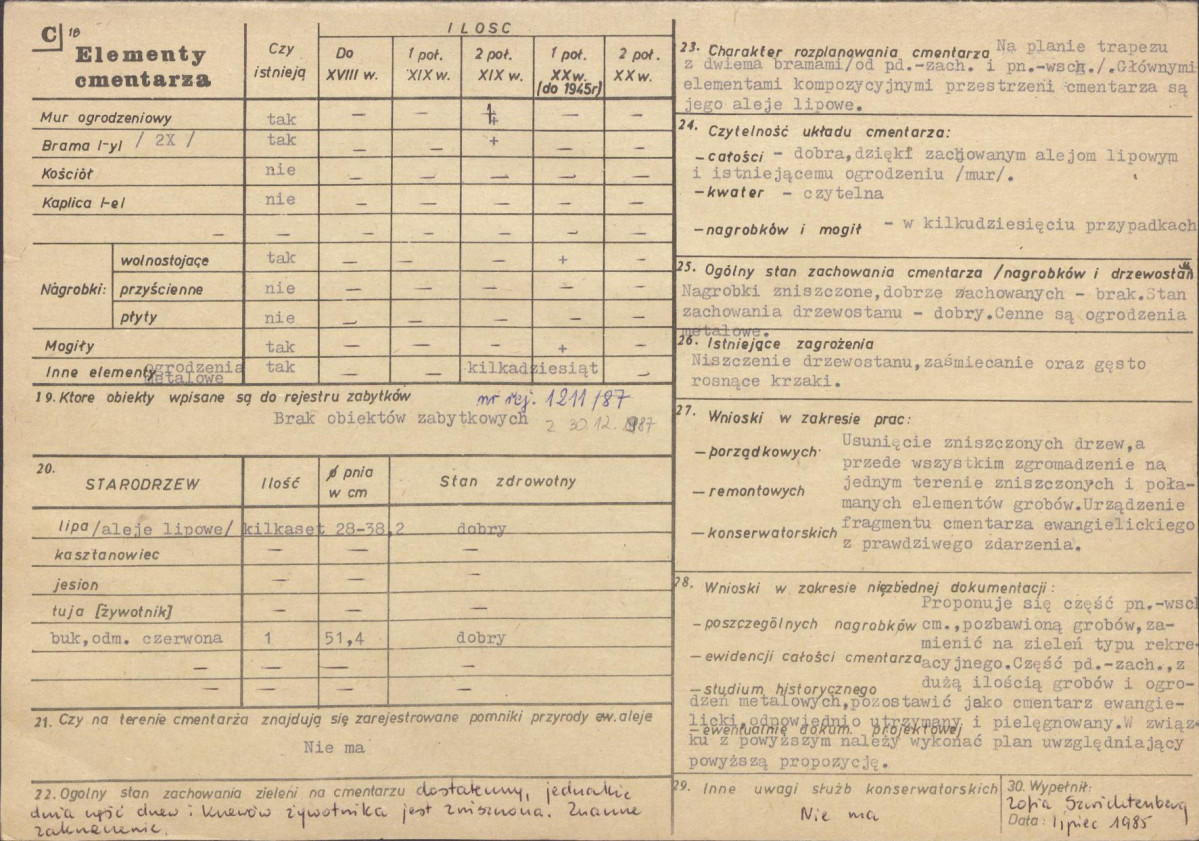 C 18 Elementy cmentarza
Czy istnieją
ILOSC
Do XVIII w.
1 poł. XIX w.
2 poł. XIX w.
1 poł. XX w. (do 1945r)
2 poł. XX w.
Mur ogrodzeniowy tak — — + — —
Brama /-y/ / 2X / tak — — + — —
Kościół nie — — — — —
Kaplica /-e/ nie — — — — —
— — — — — — —
Nagrobki: wolnostojące tak — — — + —
przyścienne nie — — — — —
płyty nie — — — — —
Mogiły tak — — — + —
Inne elementy ogrodzenia metalowe tak — — kilkadziesiąt —
19. Ktore obiekty wpisane są do rejestru zabytków nr rej. 1211/87
Brak obiektów zabytkowych z 30.12.1987
20.
STARODRZEW Ilość ø pnia w cm Stan zdrowotny
lipa /aleje lipowe/ kilkaset 28-38,2 dobry
kasztanowiec — — —
jesion — — —
tuja [żywotnik] — — —
buk, odm. czerwona 1 51,4 dobry
— — — —
— — — —
21. Czy na terenie cmentarża znajdują się zarejestrowane pomniki przyrody ew. aleje
Nie ma
22. Ogolny stan zachowania zieleni na cmentarzu dostateczny, jednakże
część drzew i krzewów żywotnika jest zniszczona. Znaczne
zakrzaczenie.
23. Charakter rozplanowania cmentarza Na planie trapezu
z dwiema bramami/od pd.-zach. i pn.-wsch./.Głównymi
elementami kompozycyjnymi przestrzeni cmentarza są
jego aleje lipowe.
24. Czytelność układu cmentarza:
— całości - dobra,dzięki zachowanym alejom lipowym
i istniejącemu ogrodzeniu /mur/.
— kwater - czytelna
— nagrobków i mogił - w kilkudziesięciu przypadkach
25. Ogólny stan zachowania cmentarza /nagrobków i drzewostan
Nagrobki zniszczone,dobrze zachowanych - brak.Stan
zachowania drzewostanu - dobry.Cenne są ogrodzenia
metalowe.
26. Istniejące zagrożenia
Niszczenie drzewostanu,zaśmiecanie oraz gęsto
rosnące krzaki.
27. Wnioski w zakresie prac:
— porządkowych
— remontowych
— konserwatorskich
Usunięcie zniszczonych drzew,a
przede wszystkim zgromadzenie na
jednym terenie zniszczonych i poła-
manych elementów grobów.Urządzenie
fragmentu cmentarza ewangielickiego
z prawdziwego zdarzenia.
28. Wnioski w zakresie niezbędnej dokumentacji:
— poszczególnych nagrobków
— ewidencji całości cmentarza
— studium historycznego
— ewentualnie dokum. projektowej
Proponuje się część pn.-wsch
cm.,pozbawioną grobów,za-
mienić na zieleń typu rekre-
acyjnego.Część pd.-zach.,z
dużą ilością grobów i ogro-
dzeń metalowych,pozostawić jako cmentarz ewangie-
licki,odpowiednio utrzymany i pielęgnowany.W związ-
ku z powyższym należy wykonać plan uwzględniający
powyższą propozycję.
29. Inne uwagi służb konserwatorskich
Nie ma
30. Wypełnił:
Zofia Szwichtenberg
Data: lipiec 1985